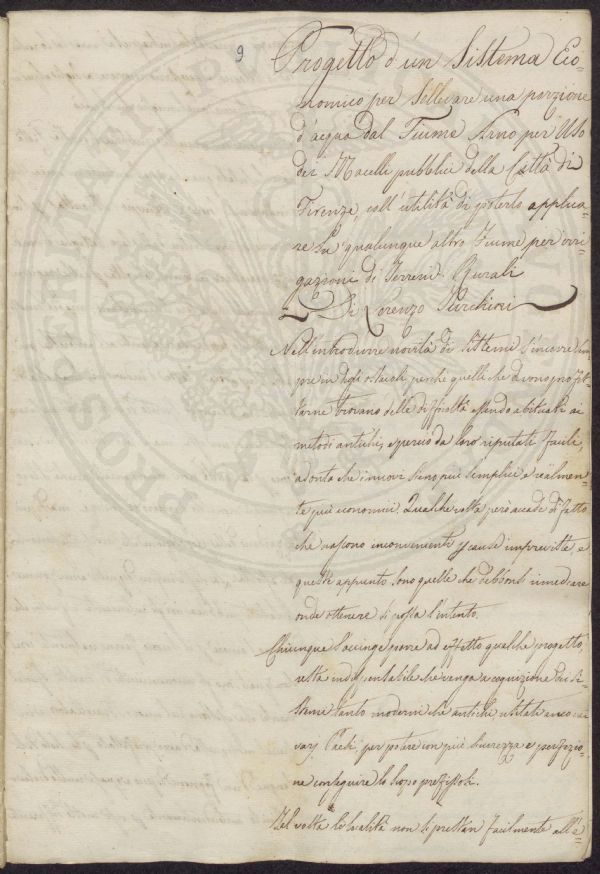 9
Progetto d'un Sistema Eco=
nomico per Sollevare una porzione
d'acqua dal Fiume Arno per Uso
dei Macelli pubblici della Città di
Firenze, coll'utilità di poterlo applica=
re In qualunque altro Fiume per irri=
gazioni di Terreni Rurali
Di Lorenzo Turchini
Nell'introdurre novità di Sistemi s'incorre sem=
pre in degli ostacoli, perche quelli che devono
tarne trovano delle difficoltà essendo abituati ai
metodi antichi, e perciò da loro riputati facili,
ad onta che i nuovi sieno più semplici e realmen=
te più economici. Qualche volta però accade di fatto
che nascono inconvenienti p cause imprevitte, e
queste appunto sono quelle che debbonsi rimediare
onde ottenere si possa l'intento.
Chiunque s'accinge porre ad effetto qualche progetto,
resta indispensabile che venga a cognizione dei Si=
stemi tanto moderni che antichi, usitati anco in
varj Paesi, per potere con più sicurezza e perfezio=
ne conseguire lo scopo prefissosi.
Tal volta le località non si prestan facilmente all'e=
PROSPERITATI PVBLICAE